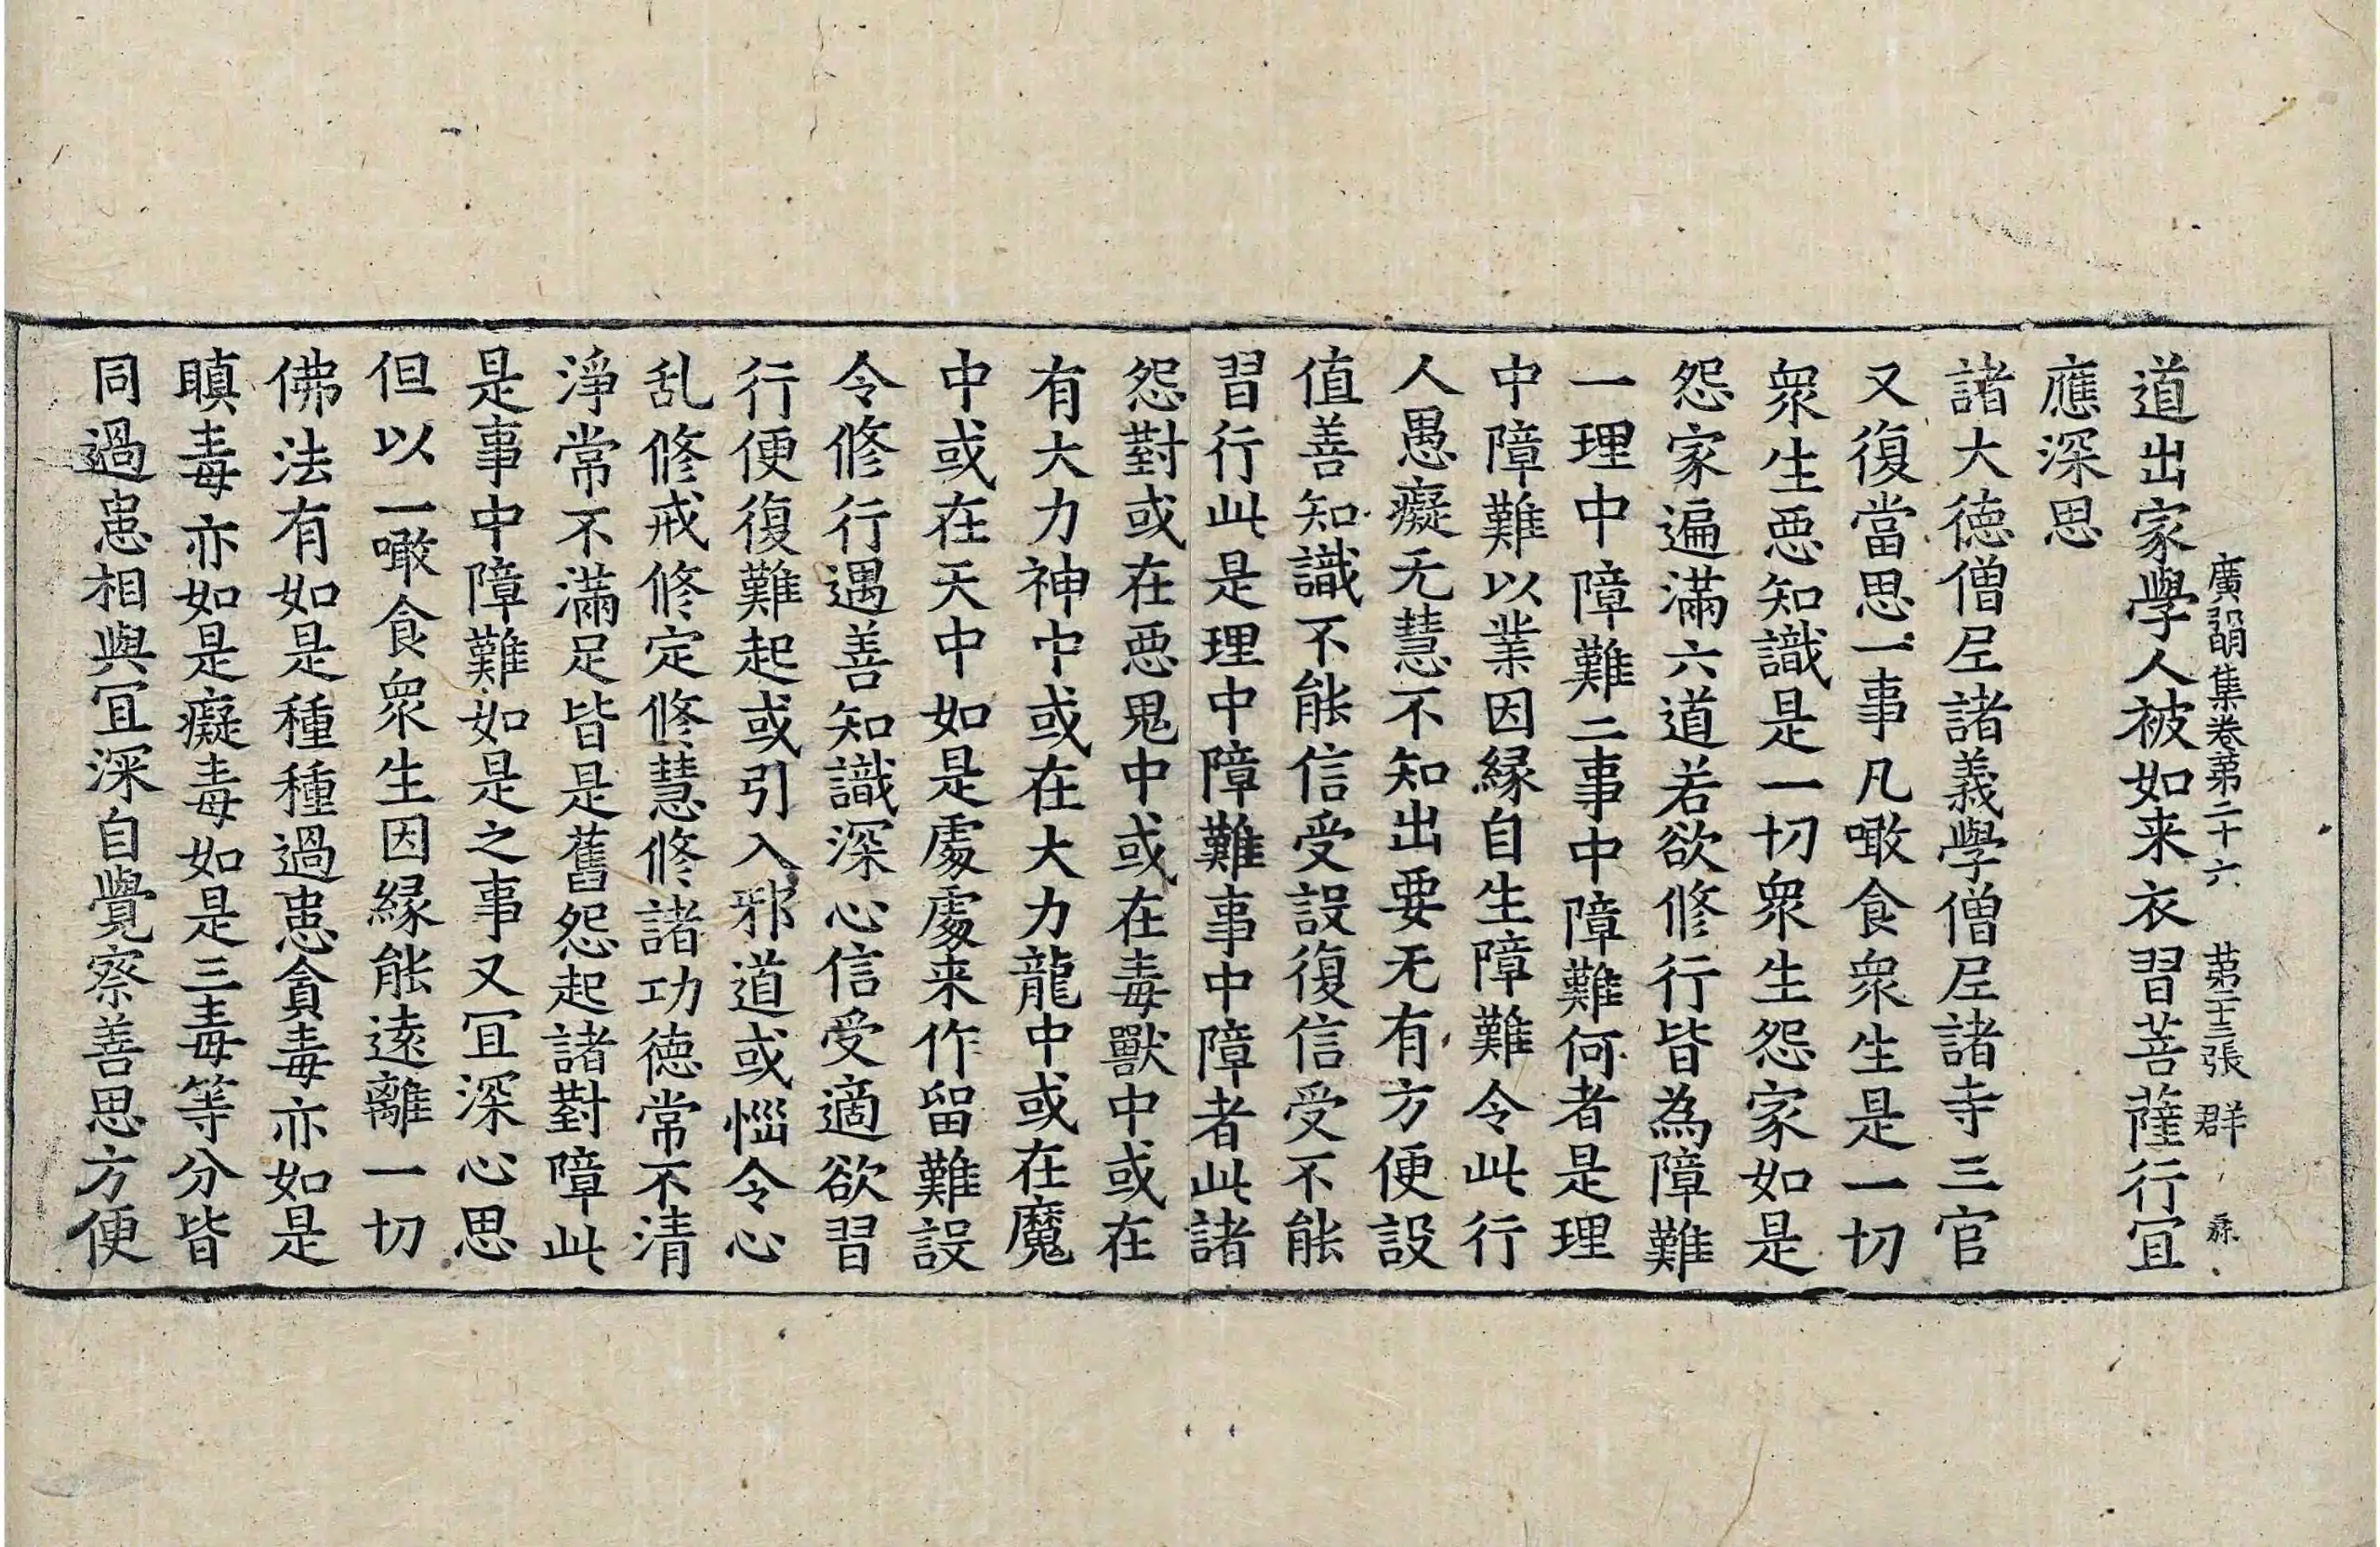 廣弘明集卷第二十六 第二十三張 群
道出家學人被如来衣習菩薩行冝
應深思
諸大德僧尼諸義學僧尼諸寺三官
又復當思一事凡噉食衆生是一切
衆生惡知識是一切衆生怨家如是
怨家遍滿六道若欲修行皆為障難
一理中障難二事中障難何者是理
中障難以業因緣自生障難令此行
人愚癡无慧不知出要无有方便設
值善知識不能信受設復信受不能
習行此是理中障難事中障者此諸
怨對或在惡鬼中或在毒獸中或在
有大力神中或在大力龍中或在魔
中或在天中如是處處来作留難設
令修行遇善知識深心信受適欲習
行便復難起或引入邪道或惱令心
乱修戒修定修慧修諸功德常不清
淨常不滿足皆是舊怨起諸對障此
是事中障難如是之事又冝深心思
但以一噉食衆生因緣能遠離一切
佛法有如是種種過患貪毒亦如是
瞋毒亦如是癡毒如是三毒等分皆
同過患相與冝深自覺察善思方便